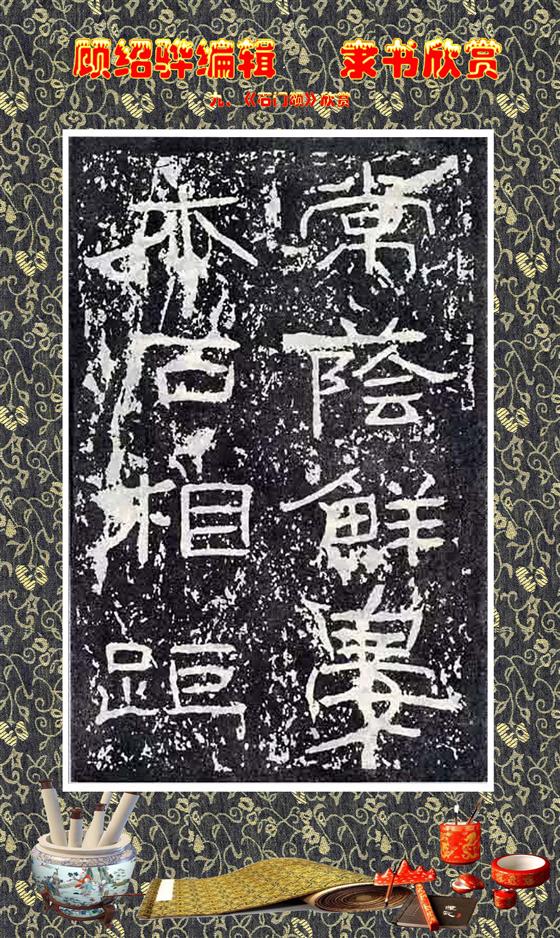 顾绍骅编辑 隶书欣赏
九、《石门颂》欣赏
常蔭鮮晏
木石相距